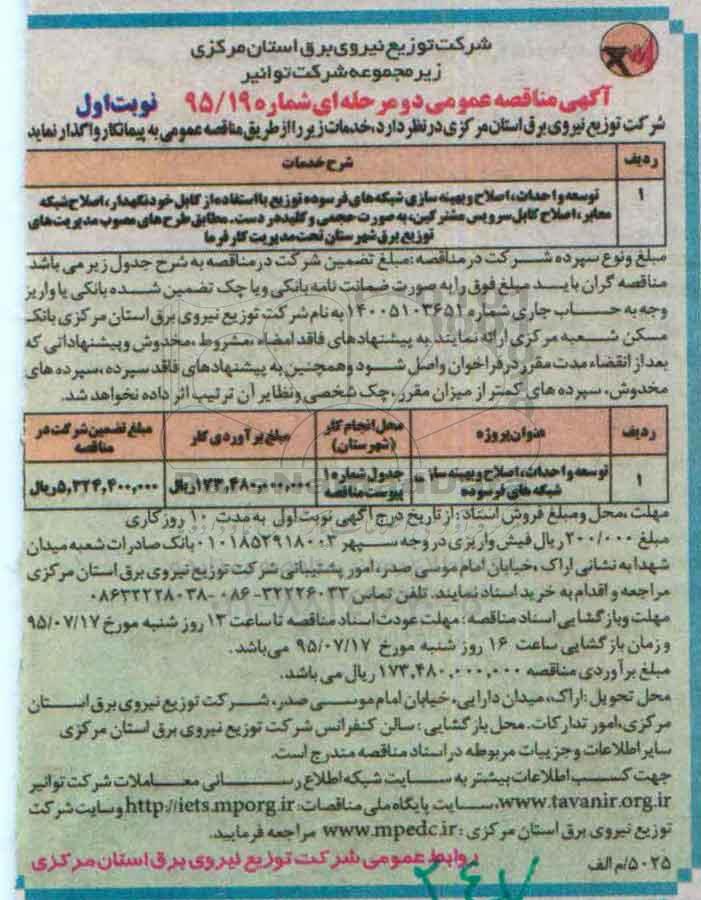 شرکت توزیع نیروی برق استان مرکزی
زیر مجموعه شرکت توانیر
آگهی مناقصه عمومی دو مرحله ای شماره ۹۵/۱۹ نوبت اول
شرکت توزیع نیروی برق استان مرکزی در نظر دارد، خدمات زیر را از طریق مناقصه عمومی به پیمانکار واگذار نماید
ردیف شرح خدمات
۱ توسعه و احداث، اصلاح و بهینه سازی شبکه های فرسوده توزیع با استفاده از کابل خودنگهدار، اصلاح شبکه
معابر، اصلاح کابل سرویس مشترکین، به صورت حجمی و کلید در دست. مطابق طرح های مصوب مدیریت های
توزیع برق شهرستان تحت مدیریت کارفرما
مبلغ و نوع سپرده شرکت در مناقصه: مبلغ تضمین شرکت در مناقصه به شرح جدول زیر می باشد
مناقصه گران باید مبلغ فوق را به صورت ضمانت نامه بانکی و یا چک تضمین شده بانکی یا واریز
وجه به حساب جاری شماره ۱۴۰۰۵۱۰۳۶۵۱ به نام شرکت توزیع نیروی برق استان مرکزی بانک
مسکن شعبه مرکزی ارائه نمایند. به پیشنهادهای فاقد امضاء، مشروط، مخدوش و پیشنهاداتی که
بعد از انقضاء مدت مقرر در فراخوان واصل شود و همچنین به پیشنهادهای فاقد سپرده، سپرده های
مخدوش، سپرده های کمتر از میزان مقرر، چک شخصی و نظایر آن ترتیب اثر داده نخواهد شد.
ردیف عنوان پروژه محل انجام کار (شهرستان) مبلغ برآوردی کار مبلغ تضمین شرکت در مناقصه
۱ توسعه و احداث، اصلاح و بهینه سازی شبکه های فرسوده جدول شماره ۱ پیوست مناقصه ۱۷۳,۴۸۰,۰۰۰,۰۰۰ ریال ۵,۳۲۴,۴۰۰,۰۰۰ ریال
مهلت، محل و مبلغ فروش اسناد: از تاریخ درج آگهی نوبت اول به مدت ۱۰ روز کاری
مبلغ ۲۰۰/۰۰۰ ریال فیش واریزی در وجه سپهر ۰۱۰۱۸۵۲۹۱۸۰۰۳ بانک صادرات شعبه میدان
شهدا به نشانی اراک، خیابان امام موسی صدر، امور پشتیبانی شرکت توزیع نیروی برق استان مرکزی
مراجعه و اقدام به خرید اسناد نمایند. تلفن تماس ۳۲۲۲۶۰۳۳-۰۸۶ - ۰۸۶۳۲۲۲۸۰۳۸
مهلت و بازگشایی اسناد مناقصه: مهلت عودت اسناد مناقصه تا ساعت ۱۳ روز شنبه مورخ ۹۵/۰۷/۱۷
و زمان بازگشایی ساعت ۱۶ روز شنبه مورخ ۹۵/۰۷/۱۷ می باشد.
مبلغ برآوردی مناقصه ۱۷۳,۴۸۰,۰۰۰,۰۰۰ ریال می باشد.
محل تحویل: اراک، میدان دارایی، خیابان امام موسی صدر، شرکت توزیع نیروی برق استان
مرکزی، امور تدارکات. محل بازگشایی: سالن کنفرانس شرکت توزیع نیروی برق استان مرکزی
سایر اطلاعات و جزییات مربوطه در اسناد مناقصه مندرج است.
جهت کسب اطلاعات بیشتر به سایت شبکه اطلاع رسانی معاملات شرکت توانیر
www.tavanir.org.ir، سایت پایگاه ملی مناقصات: http://iets.mporg.ir و سایت شرکت
توزیع نیروی برق استان مرکزی: www.mpedc.ir مراجعه فرمایید.
۵۰۲۵/م الف روابط عمومی شرکت توزیع نیروی برق استان مرکزی
۲۴۷